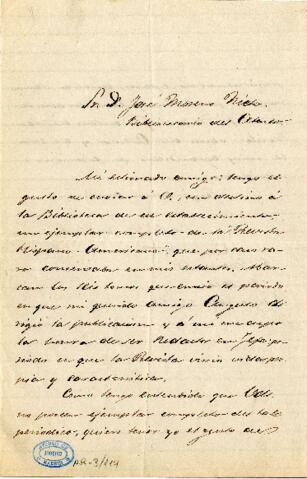 Sr. D. José Moreno Nieto
Bibliotecario del Ateneo.
Mi estimado amigo: tengo el
gusto de enviar á V., con destino á
la Biblioteca de ese establecimiento
un ejemplar completo de la Revista
Hispano-Americana, que por caso
raro conservaba en mis estantes. Abar-
can los seis tomos que envio el periodo
en que mi querido amigo Angulo di-
rigió la publicacion y á mi me cupo
la honra de ser Redactor en Jefe; pe-
riodo en que la Revista vivió vida pro-
pia y característica.
Como tengo entendido que Vds.
no poseen ejemplar completo de este
periodico, quiero tener yo el gusto de